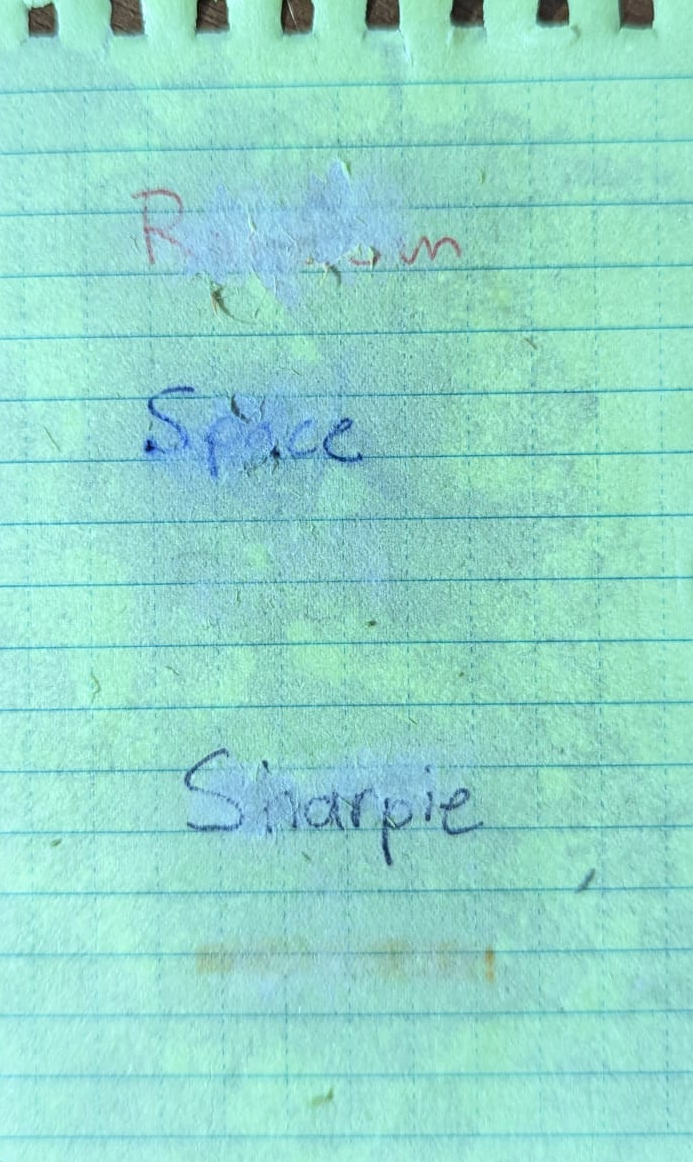 Space
Sharpie